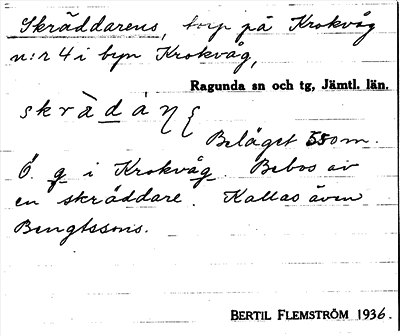 Skräddarens, torp på Krokvåg
n:r 4 i byn Krokvåg,
Ragunda sn och tg, Jämtl. län.
skràdáŋ{
Beläget 550 m.
Ö. g i Krokvåg. Bebos av
en skräddare. Kallas även
Bengtssons.
BERTIL FLEMSTRÖM 1936.